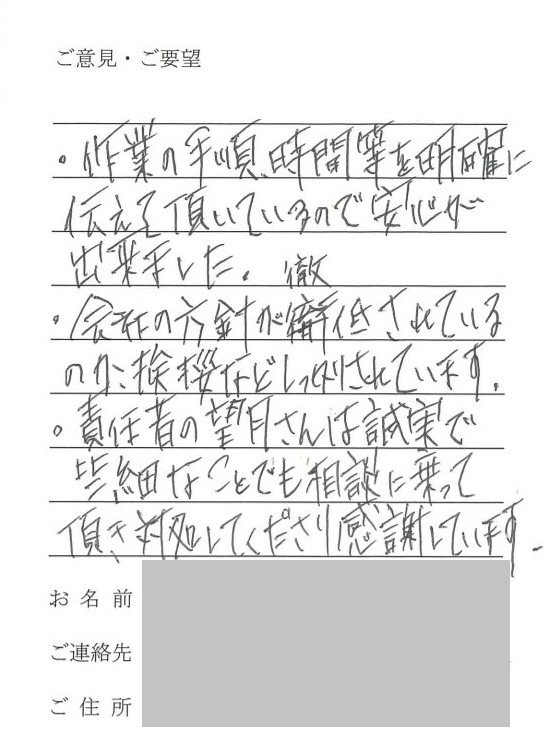 ご意見・ご要望
。作業の手順、時間等を明確に
伝えて頂いているので安心が
出来ました。
徹
。会社の方針が徹底されている
のか、挨拶などしっかりされています。
。責任者の望月さんは誠実で
些細なことでも相談に乗って
頂き対処してくださり感謝しています。
お名前
ご連絡先
ご住所